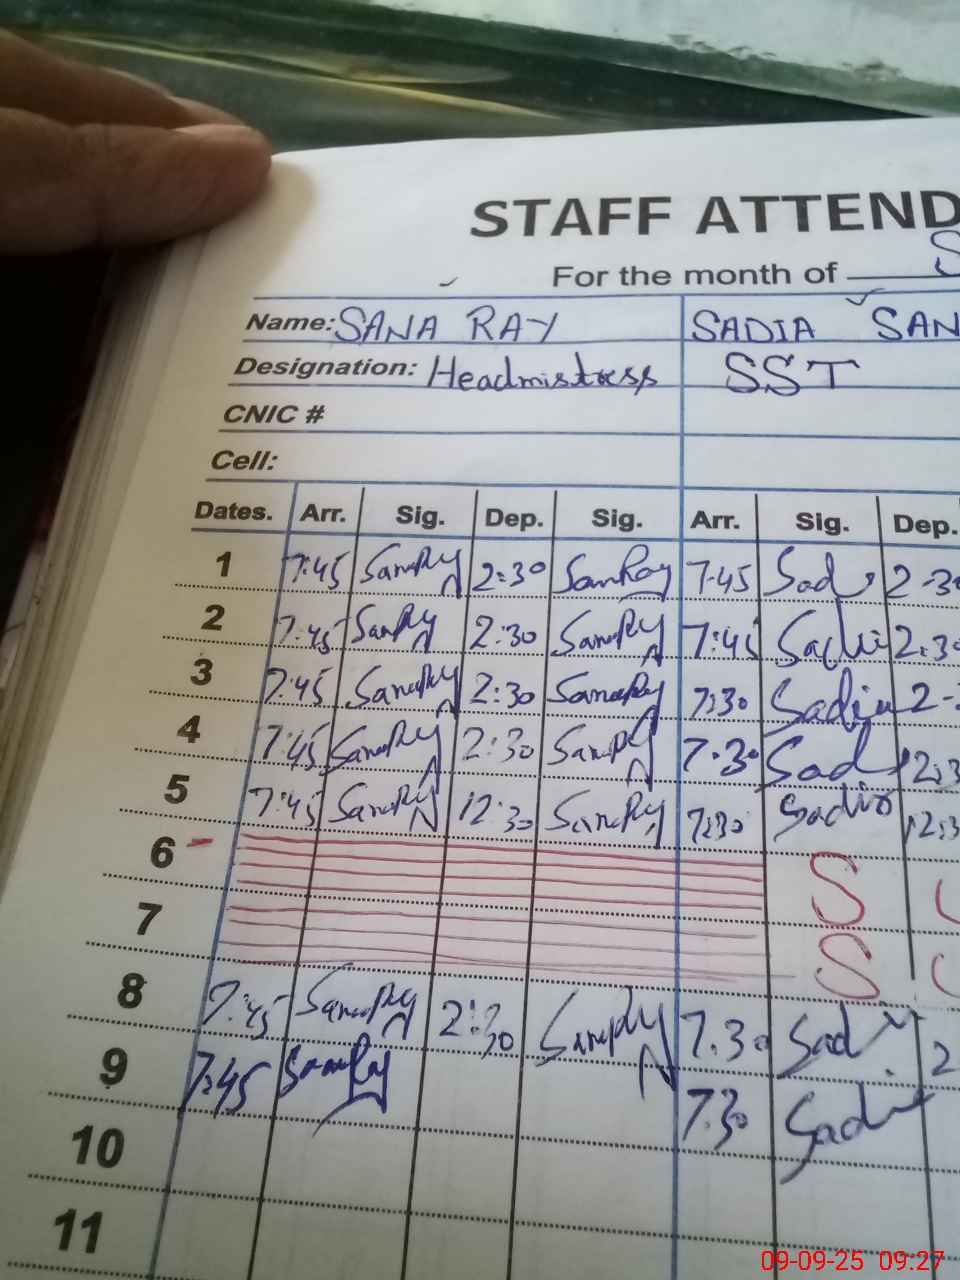 STAFF ATTEND
For the month of S
Name: SANA RAY SADIA SAN
Designation: Headmistress SST
CNIC #
Cell:
Dates. Arr. Sig. Dep. Sig. Arr. Sig. Dep.
1 7:45 SanaRy 2:30 SanRay 7-45 Sad 2-30
2 7:45 SanRy 2:30 SanaRy 7:45 Sadi 2:30
3 7:45 SanaRy 2:30 SanaRy 7:30 Sadia 2-
4 7:45 SanaRy 2:30 SanRy 7.30 Sad 12:3
5 7:45 SanaRy 12:30 SanaRy 7:30 Sadia 12:3
6 S U
7 S U
8 7:45 SanaRy 2:30 SanaRy 7.30 Sad 2
9 7:45 SanaRay 7.30 Sadi
10
11
09-09-25 09:27